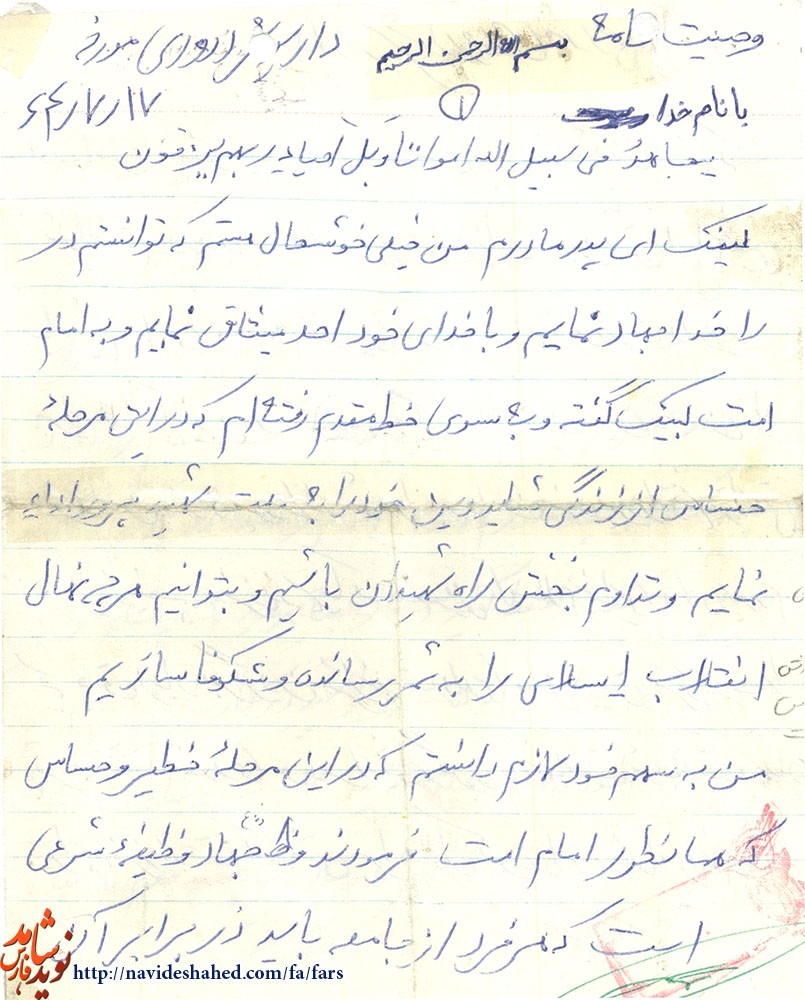 وصیت نامه بسم الله الرحمن الرحیم داریوش زوری مورخه
با نام خدا ۱ ۱۷/۷/۶۴
یجاهدُ فی سبیل الله امواتا وبل احیا در بهم یرزقون
لبیک ای پدر مادرم من خیلی خوشحال هستم که توانستم در
را خدا جهاد نمایم و با خدای خود احد میثاق نمایم و به امام
امت لبیک گفته و به سوی خط مقدم رفته ام که در این مرحلهٔ
حساس از زندگی خود را به شهید پرور اداء
نمایم و تداوم بخش راه شهیدان باشیم و بتوانیم هرچه نهال
انقلاب اسلامی را به ثمر رسانده و شکوفا سازیم
من به سهم خود لازم دانستم که در این مرحلهٔ خطیر و حساس
که همانطور امام امت فرمودند جهاد وظیفهٔ شرعی
است که هر فرد از جامعه باید در برابر آن
نوید شاهد فارس
http://navideshahed.com/fa/fars